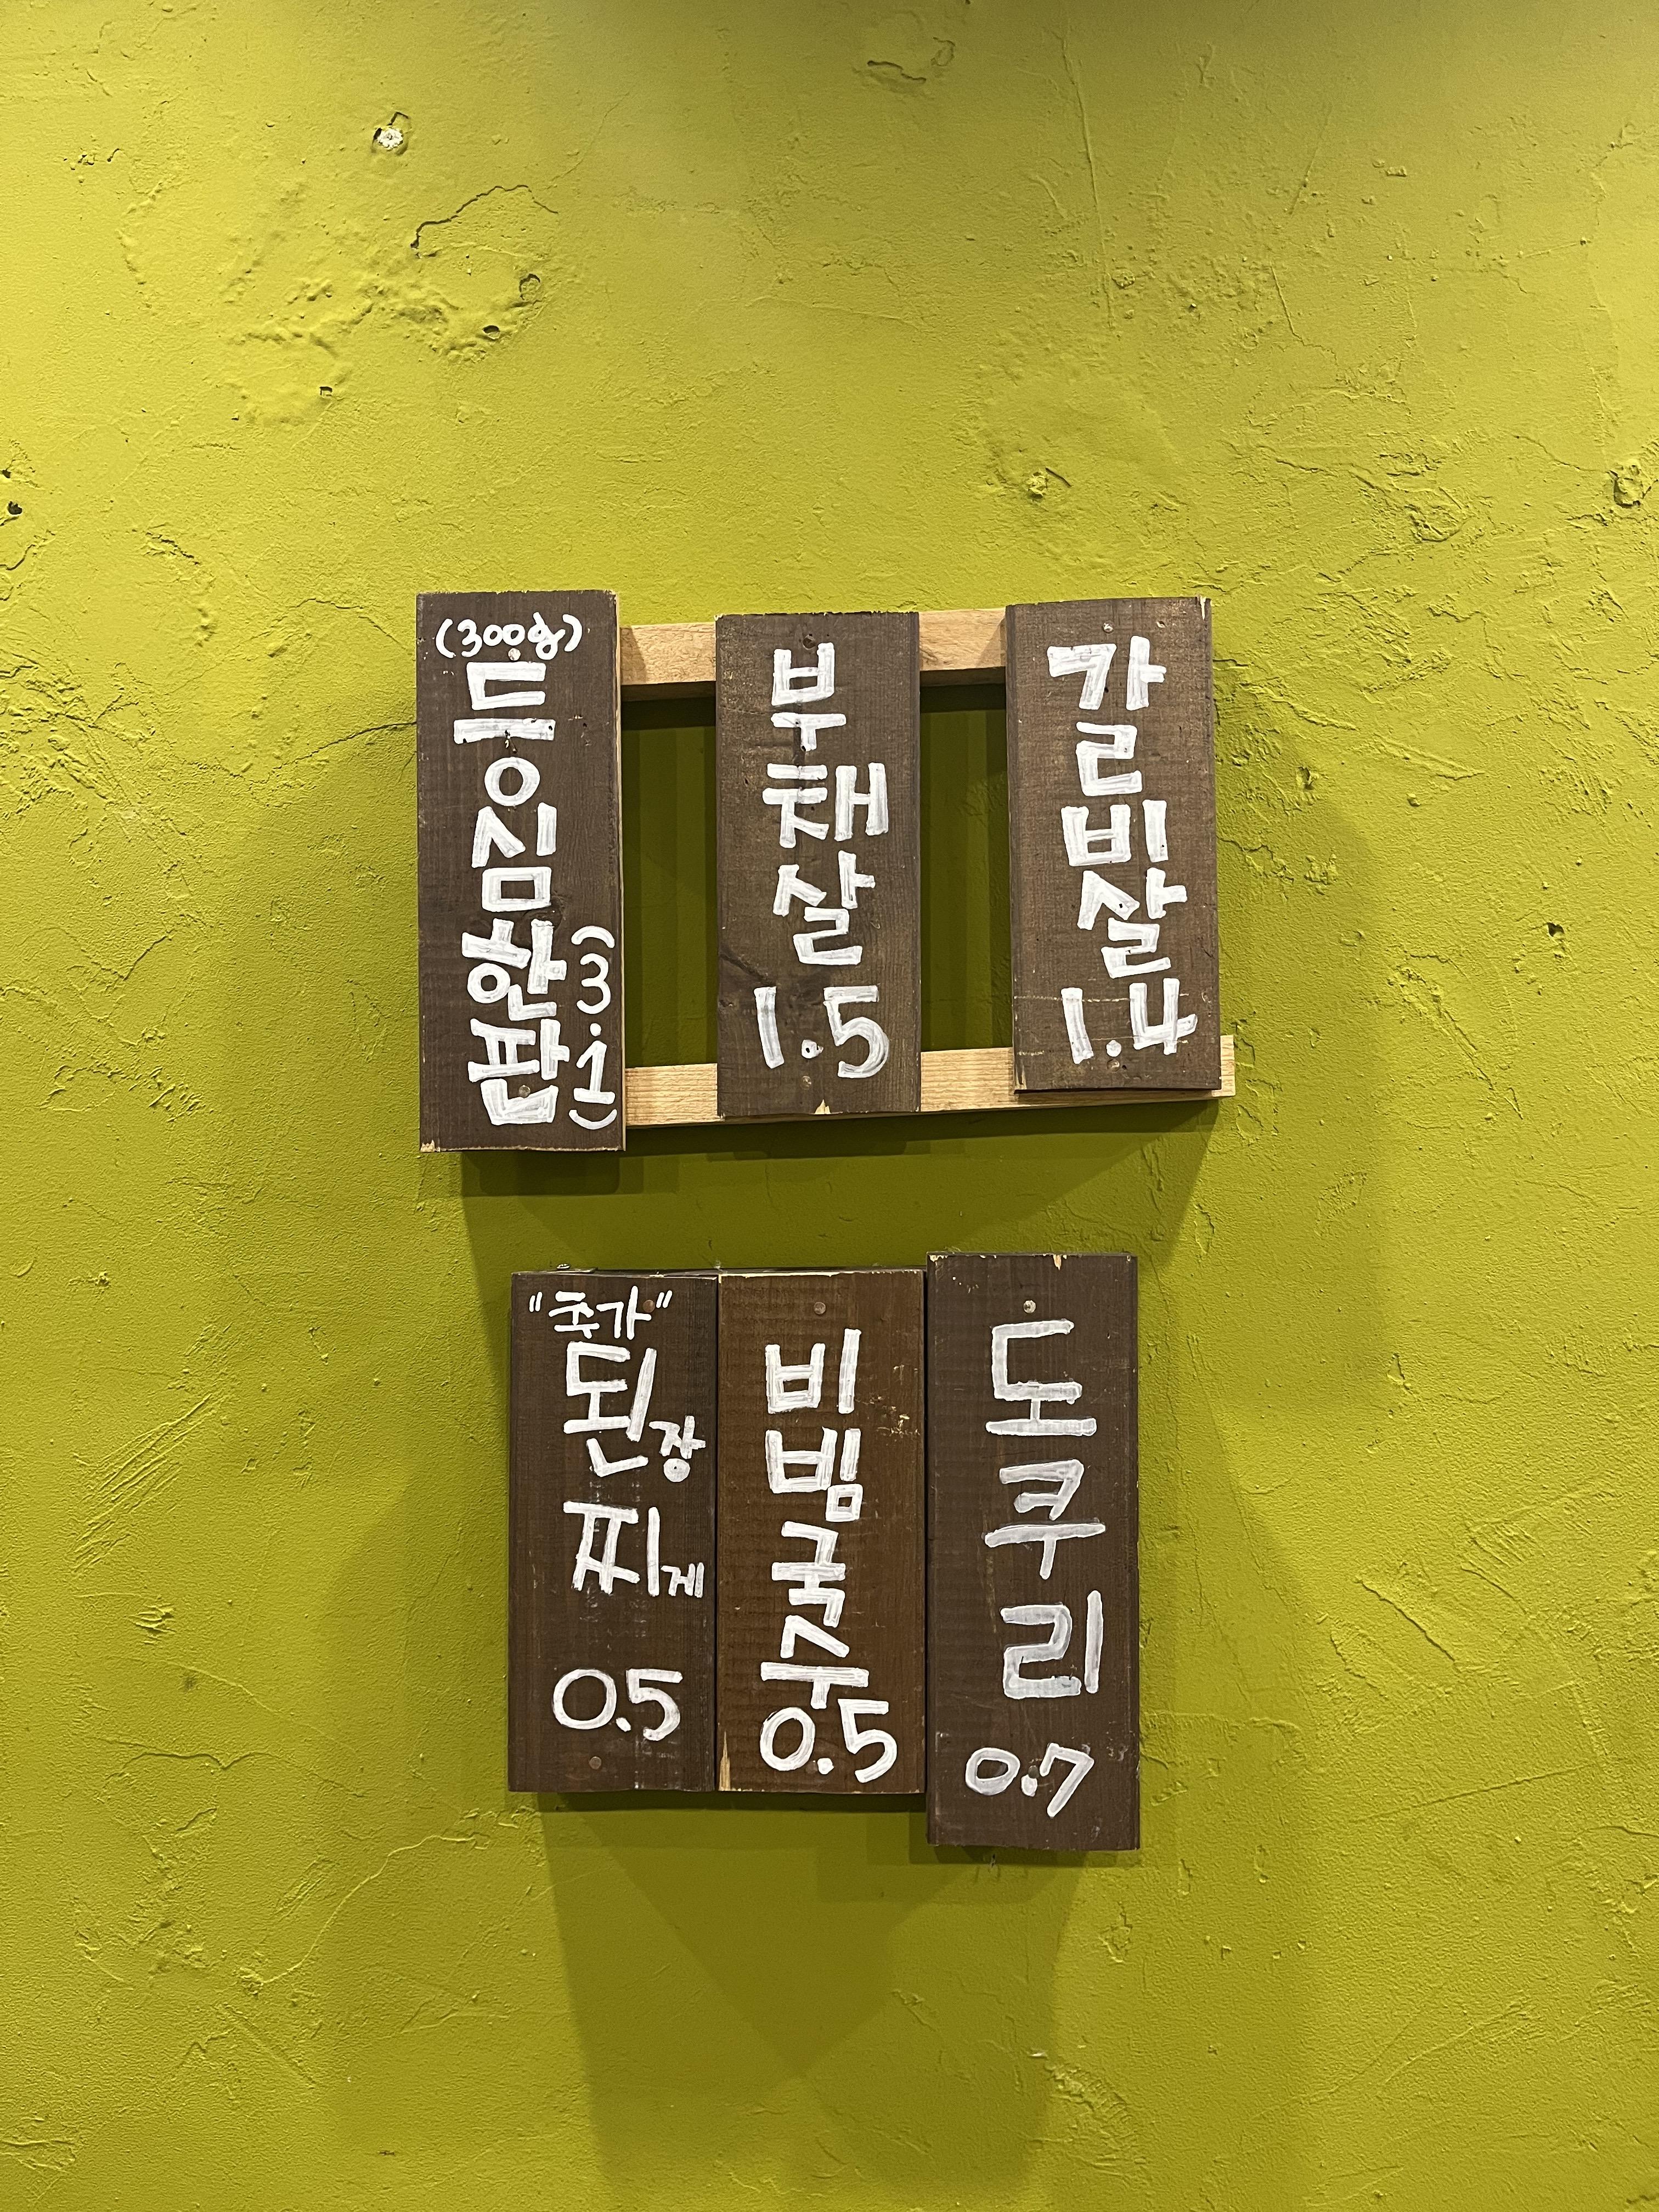 (300g)
등심한판
(3.1)
부채살
1.5
갈비살
1.4
"추가"
된장
찌게
0.5
비빔국수
0.5
도쿠리
0.7